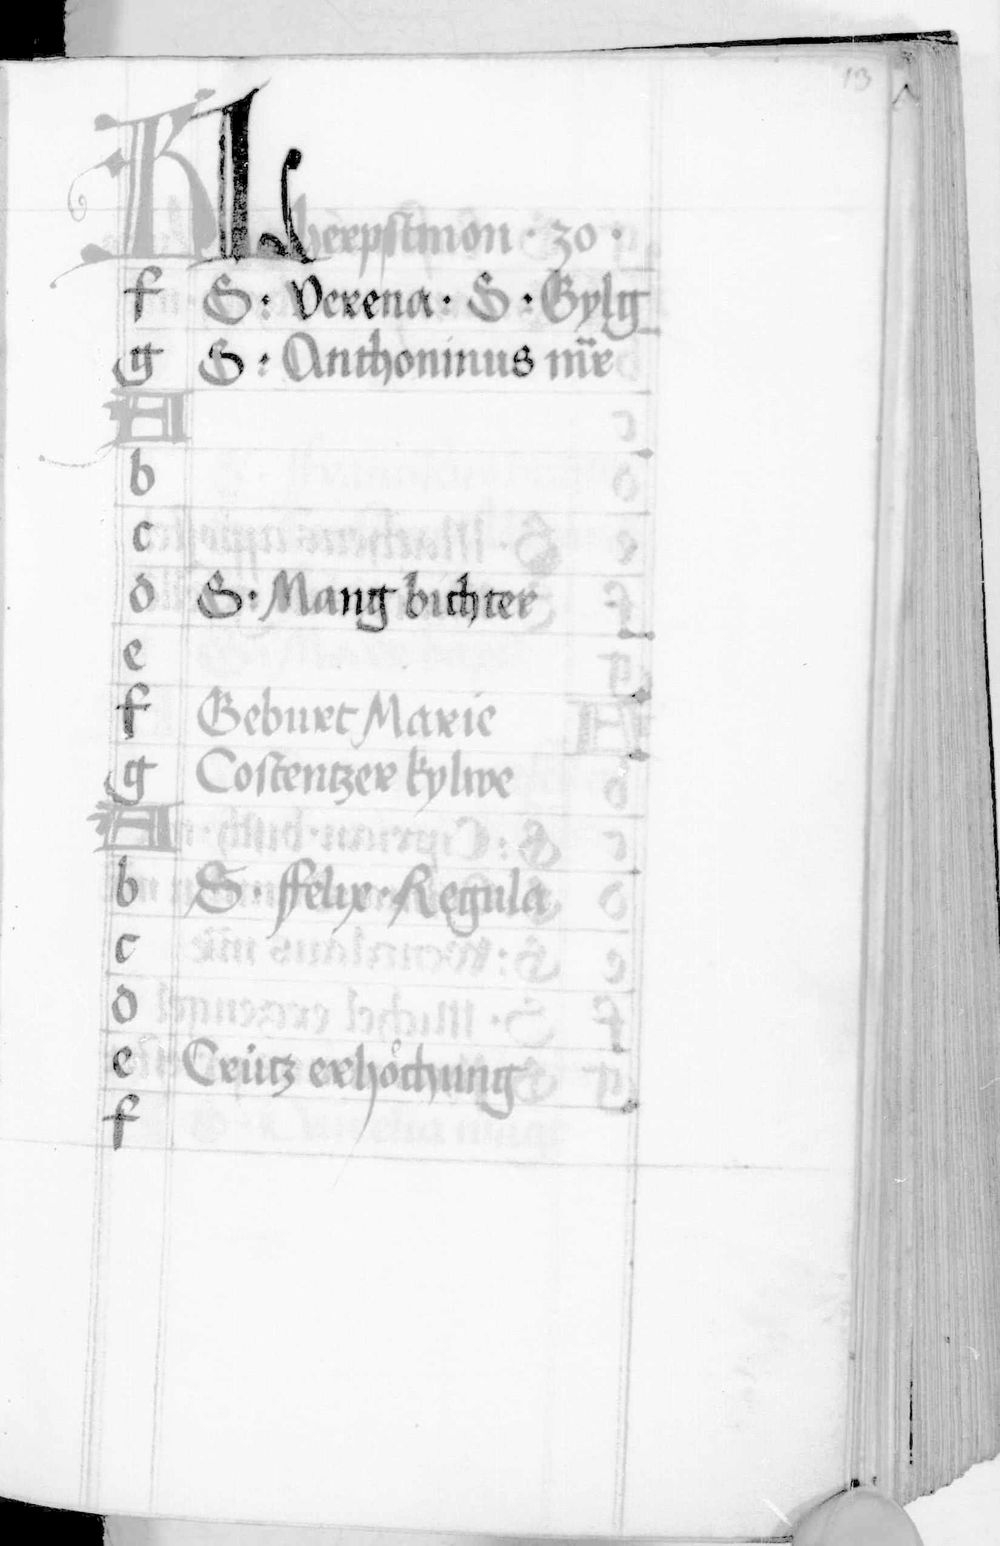 13
KL herpstmon · 30 ·
f S: Verena · S · Gylg
g S: Anthoninus mr̄e
A
b
c
d S: Mang bichter
e
f Geburt Marie
g Costentzer kylwe
A
b S · ffelix · Regula
c
d
e Crütz erhöchung
f